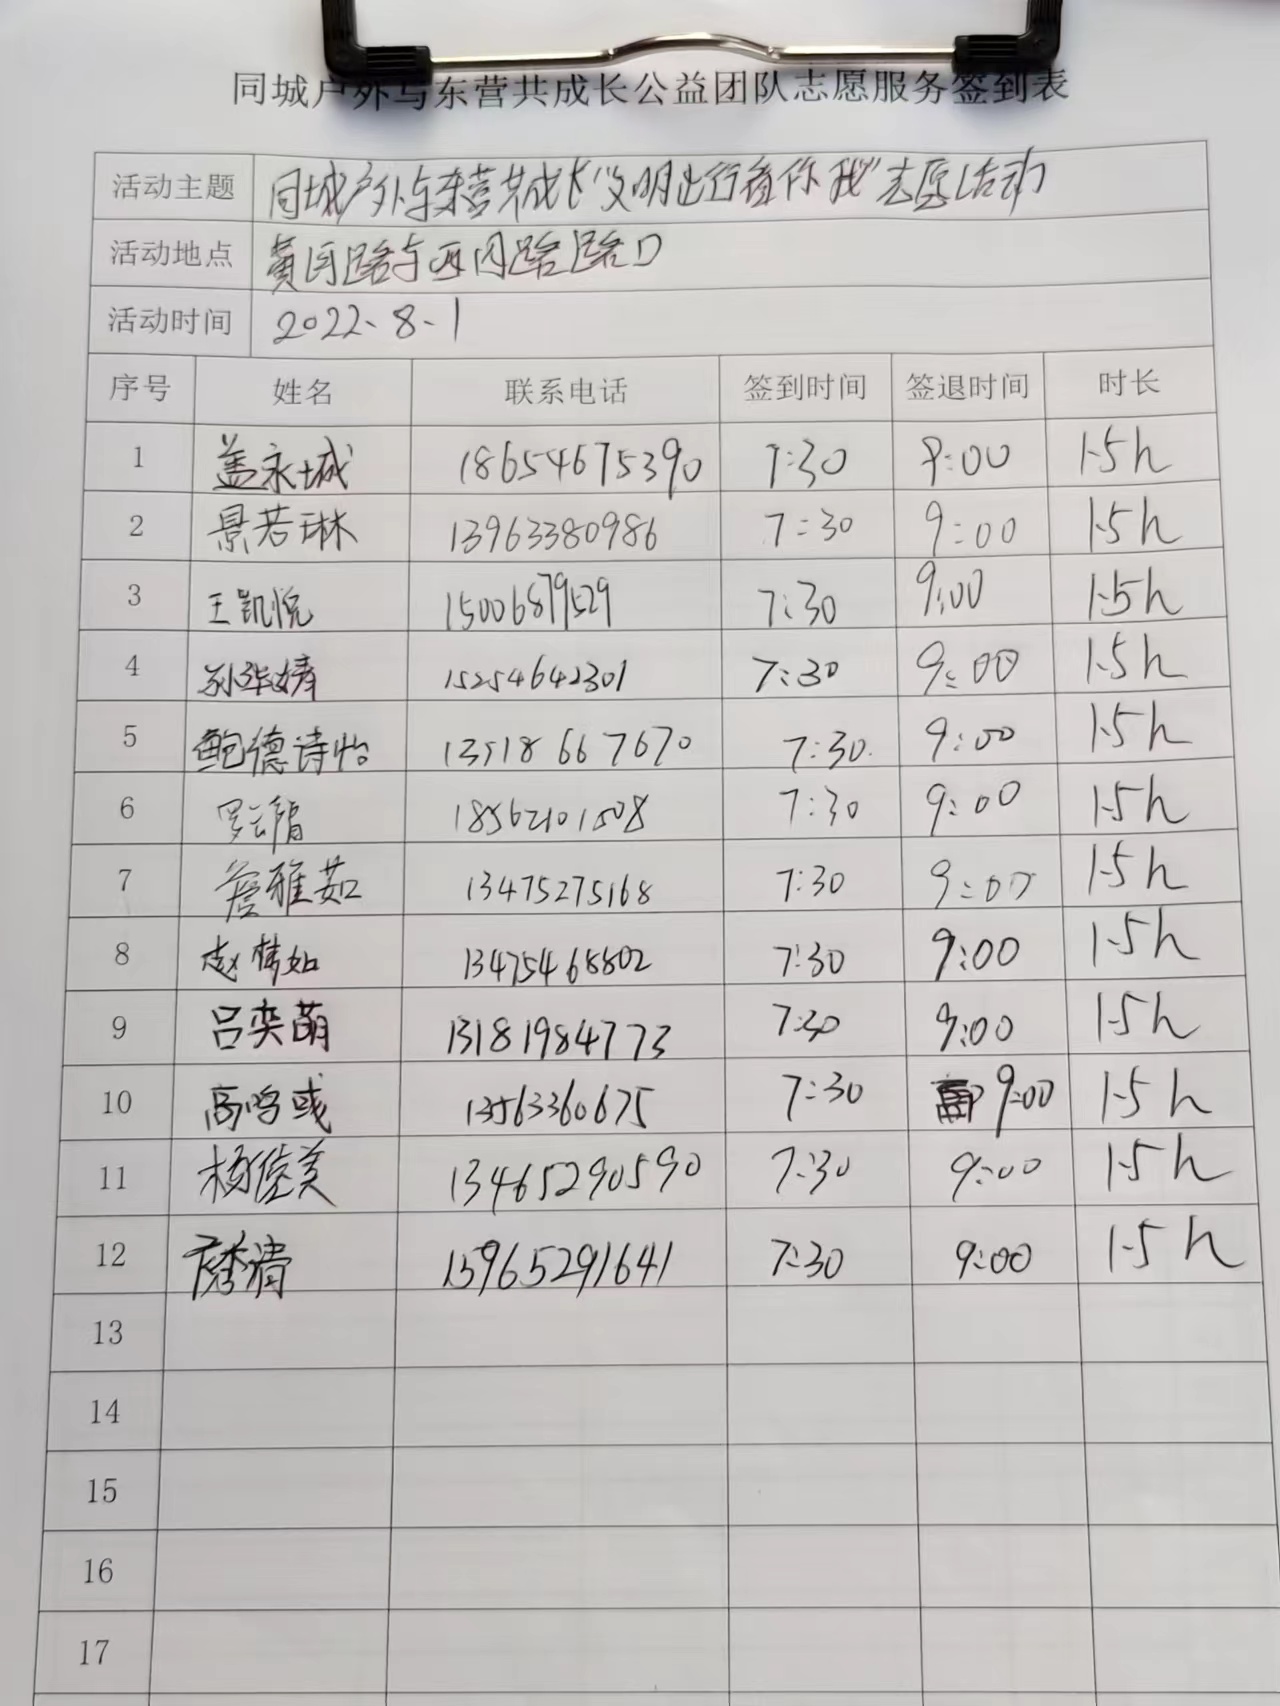 同城户外与东营共成长公益团队志愿服务签到表
活动主题 同城户外与东营共成长"文明出行有你我"志愿活动
活动地点 黄河路与西四路路口
活动时间 2022、8、1
序号 姓名 联系电话 签到时间 签退时间 时长
1 盖永城 18654675390 7:30 9:00 1.5h
2 景若琳 13963380986 7:30 9:00 1.5h
3 王凯悦 15006879529 7:30 9:00 1.5h
4 孙华婧 15254642301 7:30 9:00 1.5h
5 鲍德诗怡 13518667670 7:30 9:00 1.5h
6 罗云 18562101508 7:30 9:00 1.5h
7 詹雅茹 13475275168 7:30 9:00 1.5h
8 赵梦如 13475468802 7:30 9:00 1.5h
9 吕奕萌 13181984773 7:30 9:00 1.5h
10 高鸣彧 13563360675 7:30 9:00 1.5h
11 杨佳美 13465290590 7:30 9:00 1.5h
12 清 15965291641 7:30 9:00 1.5h
13
14
15
16
17